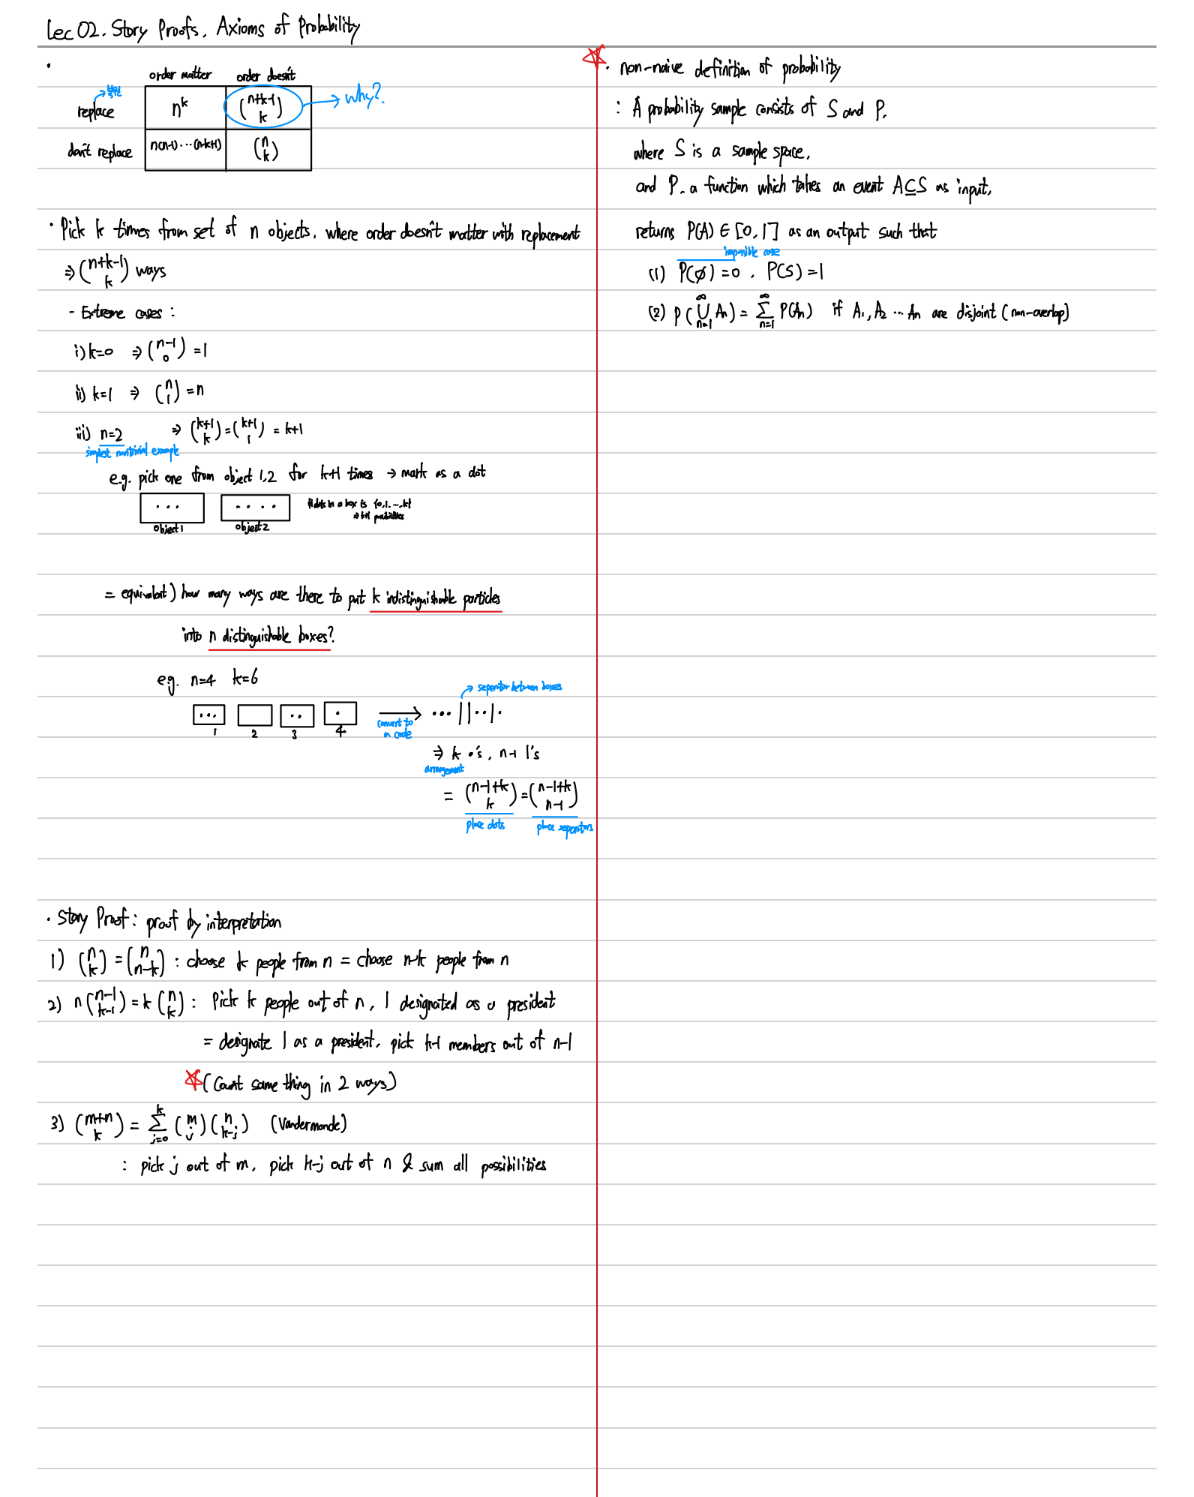 Lec 02. Story Proofs, Axioms of Probability
order matter order doesn't
replace n^k (n+k-1 k) → why?
don't replace n(n-1)···(n-k+1) (n k)
· Pick k times from set of n objects, where order doesn't matter with replacement
⇒ (n+k-1 k) ways
- Extreme cases :
i) k=0 ⇒ (n-1 0) = 1
ii) k=1 ⇒ (n 1) = n
iii) n=2 ⇒ (k+1 k) = (k+1 1) = k+1
simplest nontrivial example
e.g. pick one from object 1,2 for k+1 times → mark as a dot
# dots in a box is {0,1,...,k}
⇒ k+1 possibilities
object1 object2
= equivalent) how many ways are there to put k indistinguishable particles
into n distinguishable boxes?
eg. n=4 k=6
→ separator between boxes
··· | | ·· | ·
1 2 3 4
convert to
a code
⇒ k ·'s, n-1 |'s
arrangement
= (n-1+k k) = (n-1+k n-1)
place dots place separators
· Story Proof : proof by interpretation
1) (n k) = (n n-k) : choose k people from n = choose n-k people from n
2) n (n-1 k-1) = k (n k) : Pick k people out of n, 1 designated as a president
= designate 1 as a president, pick k-1 members out of n-1
(Count same thing in 2 ways)
3) (m+n k) = Σ_{j=0}^{k} (m j) (n k-j) (Vandermonde)
: pick j out of m, pick k-j out of n & sum all possibilities
· non-naive definition of probability
: A probability sample consists of S and P,
where S is a sample space,
and P, a function which takes an event A⊆S as input,
returns P(A) ∈ [0, 1] as an output such that
impossible case
(1) P(∅) = 0 , P(S) = 1
(2) P(⋃_{n=1}^{∞} An) = Σ_{n=1}^{∞} P(An) if A1, A2 ··· An are disjoint (non-overlap)